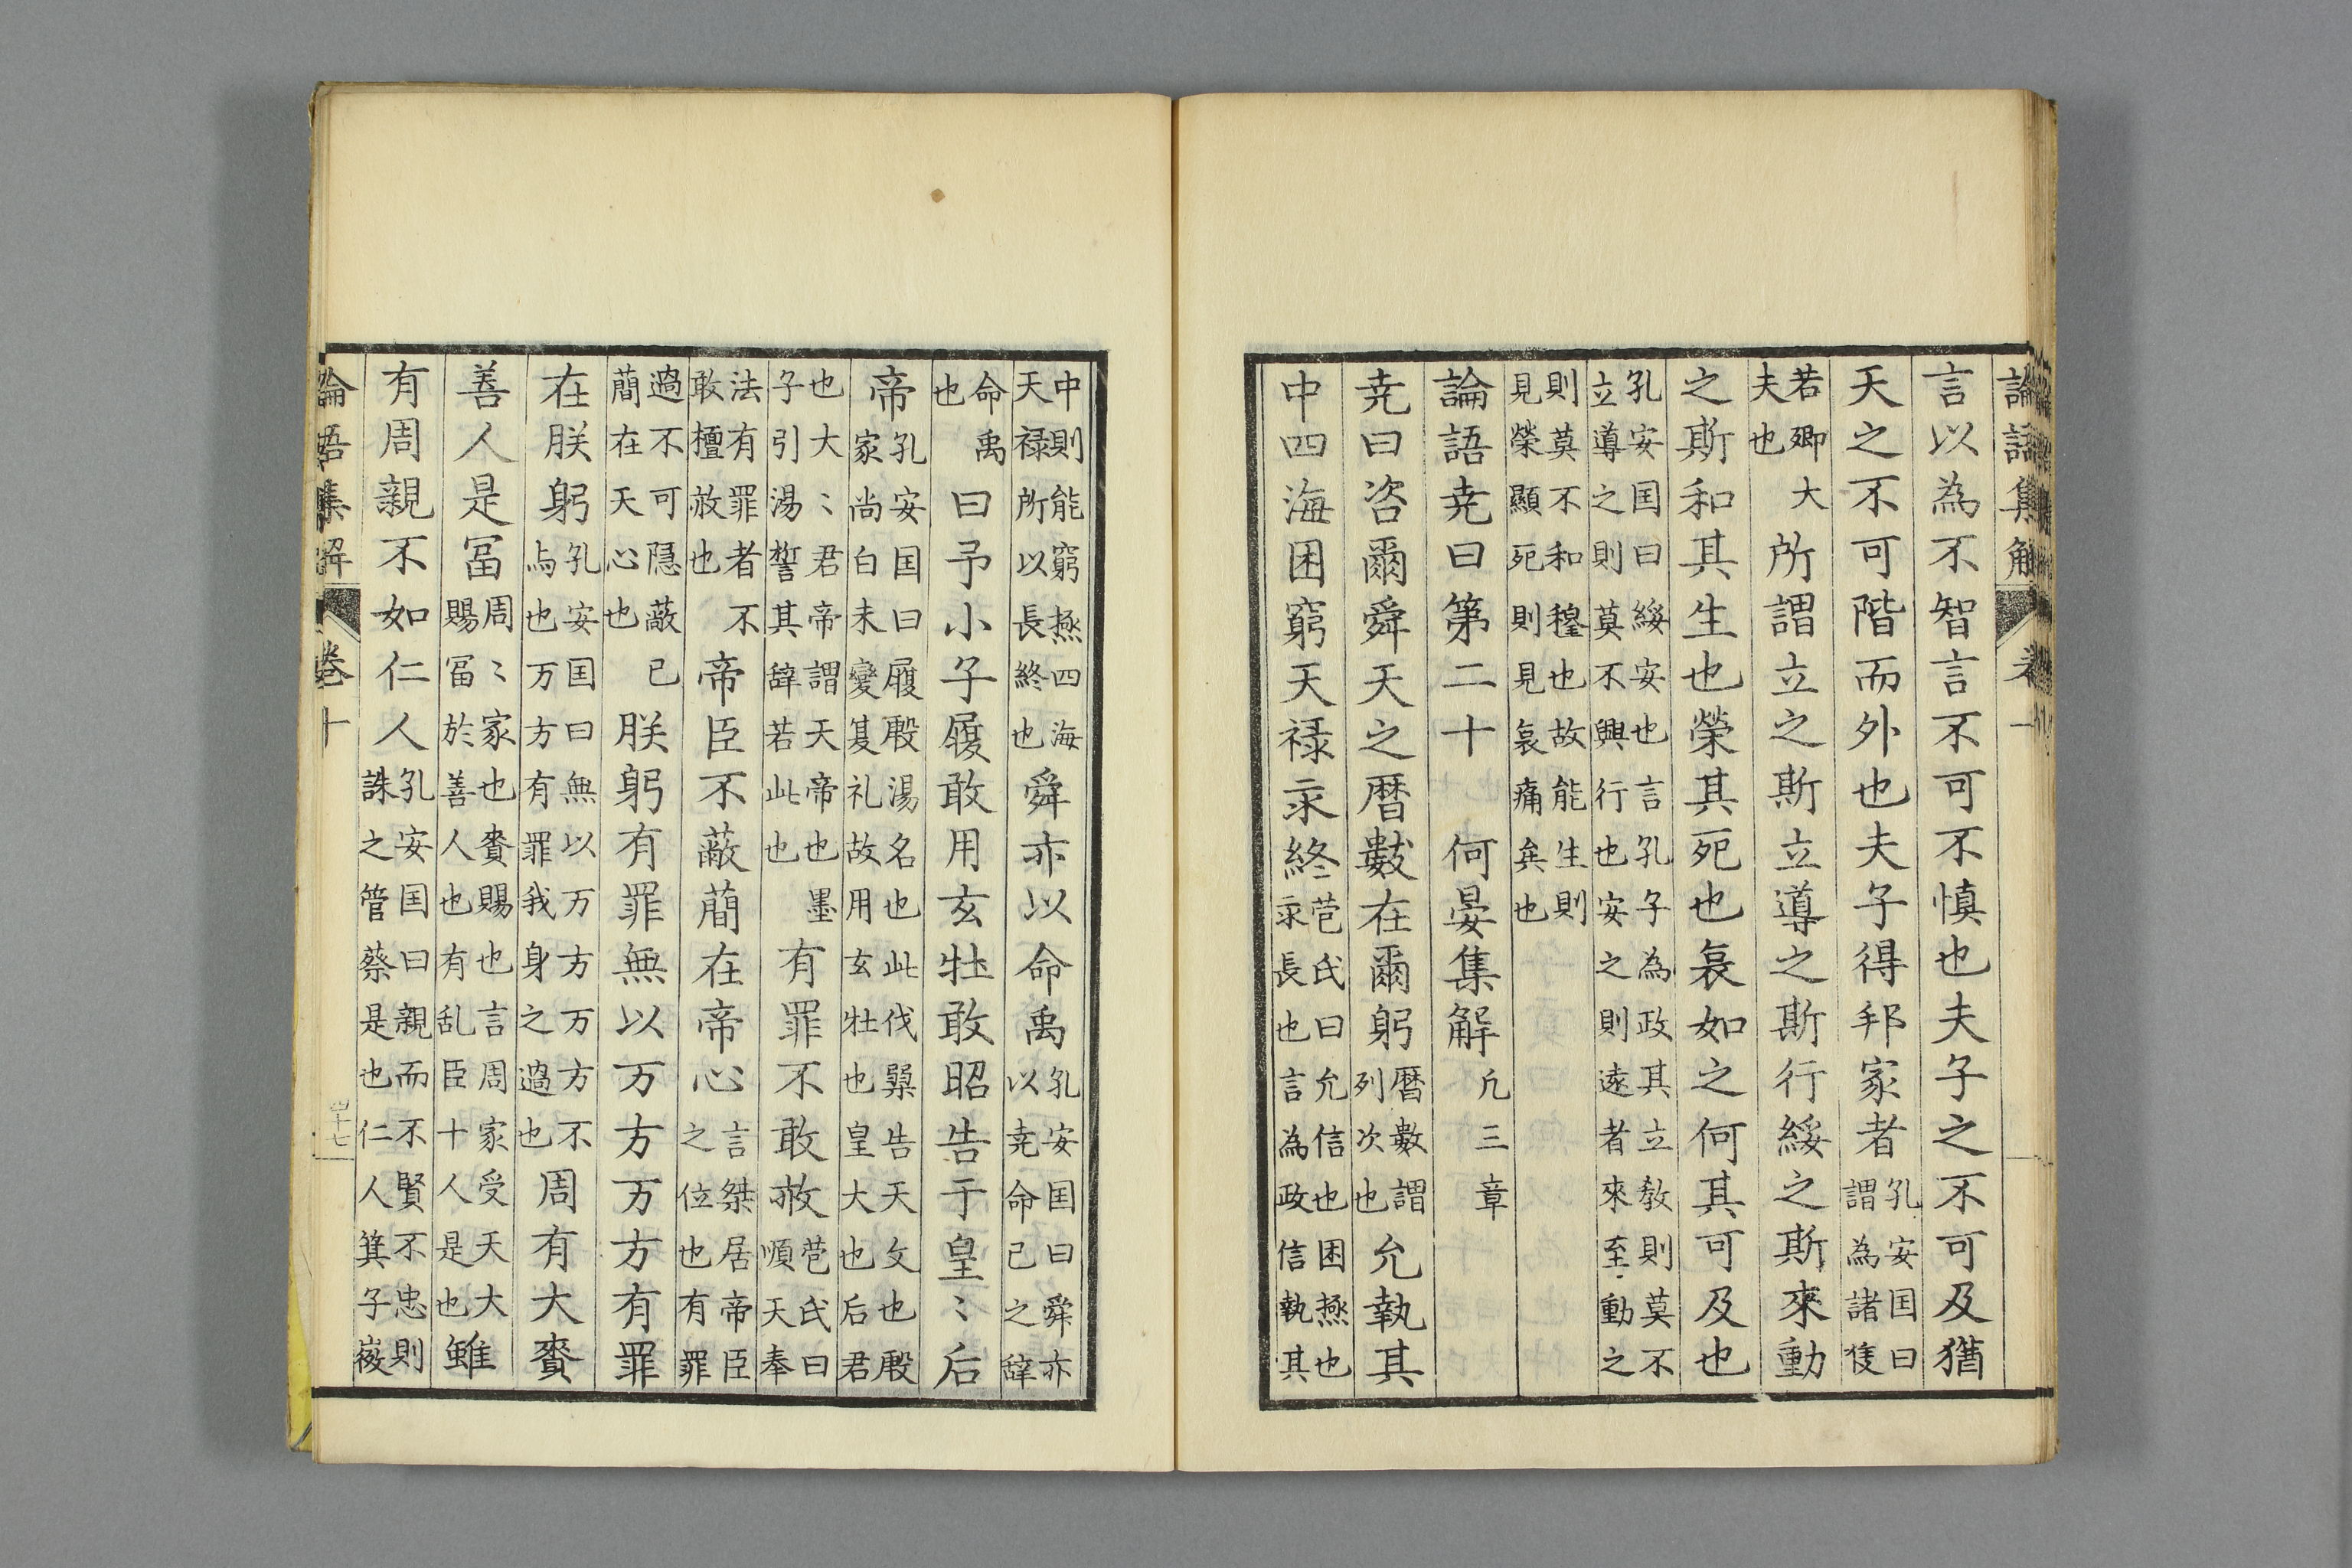 論語集解
言以為不智言不可不慎也夫子之不可及猶
天之不可階而外也夫子得邦家者孔安国曰謂為諸侯
若卿大夫也所謂立之斯立導之斯行綏之斯來動
之斯和其生也榮其死也哀如之何其可及也
孔安国曰綏安也言孔子為政其立教則莫不立導之則莫不興行也安之則遠者來至動之
則莫不和穆也故能生則見榮顯死則見哀痛矣也
論語堯曰第二十 何晏集解 凡三章
堯曰咨爾舜天之曆數在爾躬曆數謂列次也允執其
中四海困窮天禄永終苞氏曰允信也困極也永長也言為政信執其
中則能窮極四海天禄所以長終也舜亦以命禹孔安国曰舜亦以堯命己之辝
命禹也曰予小子履敢用玄牡敢昭告于皇〻后
帝孔安国曰履殷湯名也此伐桀告天文也殷家尚白未變夏礼故用玄牡也皇大也后君
也大〻君帝謂天帝也墨子引湯誓其辝若此也有罪不敢赦苞氏曰順天奉
法有罪者不敢擅赦也帝臣不蔽簡在帝心言桀居帝臣之位也有罪
過不可隠蔽已簡在天心也朕躬有罪無以万方万方有罪
在朕躬孔安国曰無以万方万方不与也万方有罪我身之過也周有大賚
善人是冨周〻家也賚賜也言周家受天大賜冨於善人也有乱臣十人是也雖
有周親不如仁人孔安国曰親而不賢不忠則誅之管蔡是也仁人箕子微
論語集解 卷十 四十七